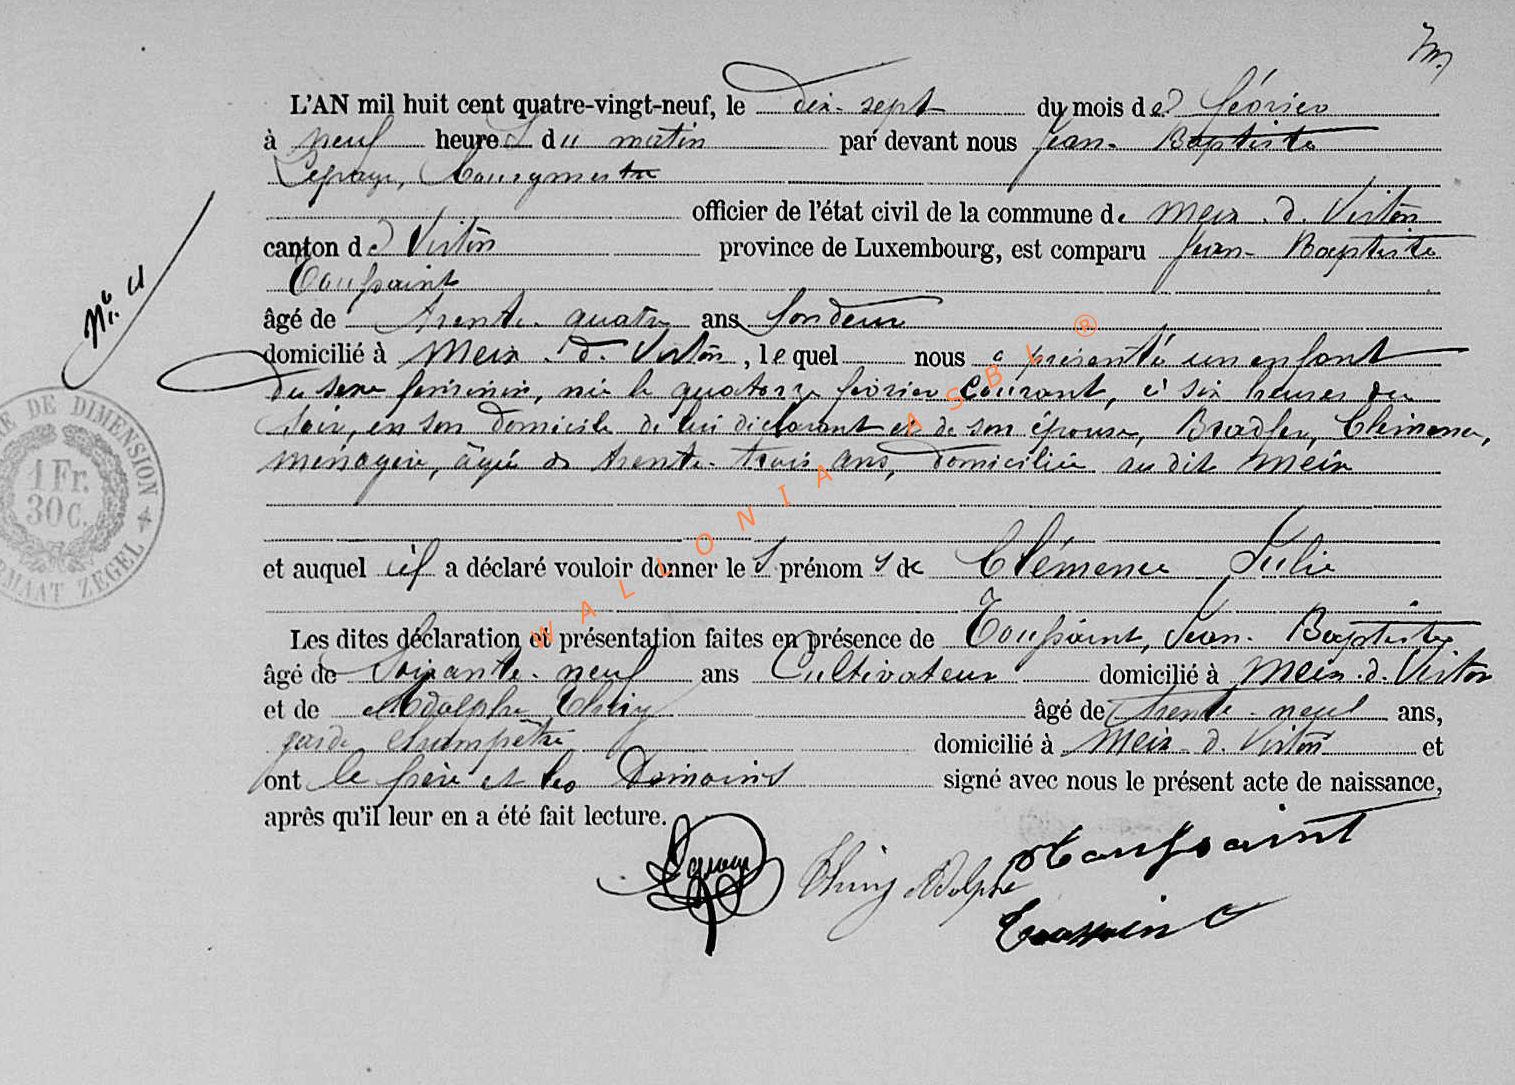 L'AN mil huit cent quatre-vingt-neuf, le dix-sept du mois de février
à neuf heures du matin par devant nous Jean-Baptiste
Lepage, Bourgmestre
officier de l'état civil de la commune de Meix-d-Virton
canton de Virton province de Luxembourg, est comparu Jean-Baptiste
Toussaint
âgé de trente-quatre ans
domicilié à Meix-d-Virton, lequel nous a présenté un enfant
du sexe féminin, née le quatorze février courant, à six heures du
soir, en son domicile de lui déclarant et de son épouse, Clémence,
ménagère, âgée de trente-trois ans, domiciliée au dit Meix
et auquel il a déclaré vouloir donner les prénoms de Clémence Julie
Les dites déclaration et présentation faites en présence de Toussaint, Jean-Baptiste
âgé de soixante-neuf ans Cultivateur domicilié à Meix-d-Virton
et de Adolphe Thiry âgé de trente-neuf ans,
garde champêtre domicilié à Meix-d-Virton et
ont le père et les témoins signé avec nous le présent acte de naissance,
après qu'il leur en a été fait lecture.
Lepage Thiry Adolphe Toussaint
Toussaint
DE DIMENSION
1 Fr.
30 C.
ZEGEL 4
WALLONIA ASBL ®